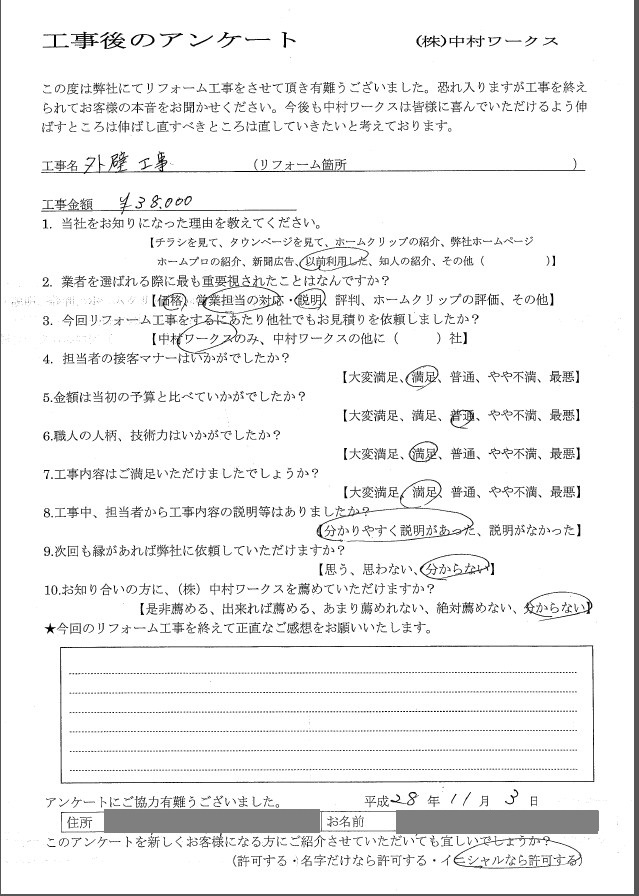 工事後のアンケート (株)中村ワークス
この度は弊社にてリフォーム工事をさせて頂き有難うございました。恐れ入りますが工事を終え
られてお客様の本音をお聞かせください。今後も中村ワークスは皆様に喜んでいただけるよう伸
ばすところは伸ばし直すべきところは直していきたいと考えております。
工事名 外壁工事 (リフォーム箇所 )
工事金額 ¥38.000
1. 当社をお知りになった理由を教えてください。
【チラシを見て、タウンページを見て、ホームクリップの紹介、弊社ホームページ
ホームプロの紹介、新聞広告、以前利用した、知人の紹介、その他（ )】
2. 業者を選ばれる際に最も重要視されたことはなんですか？
【価格、営業担当の対応・説明、評判、ホームクリップの評価、その他】
3. 今回リフォーム工事をするにあたり他社でもお見積りを依頼しましたか？
【中村ワークスのみ、中村ワークスの他に（ ）社】
4. 担当者の接客マナーはいかがでしたか？
【大変満足、満足、普通、やや不満、最悪】
5.金額は当初の予算と比べていかがでしたか？
【大変満足、満足、普通、やや不満、最悪】
6.職人の人柄、技術力はいかがでしたか？
【大変満足、満足、普通、やや不満、最悪】
7.工事内容はご満足いただけましたでしょうか？
【大変満足、満足、普通、やや不満、最悪】
8.工事中、担当者から工事内容の説明等はありましたか？
【分かりやすく説明があった、説明がなかった】
9.次回も縁があれば弊社に依頼していただけますか？
【思う、思わない、分からない】
10.お知り合いの方に、（株）中村ワークスを薦めていただけますか？
【是非薦める、出来れば薦める、あまり薦めれない、絶対薦めない、分からない】
★今回のリフォーム工事を終えて正直なご感想をお願いいたします。
アンケートにご協力有難うございました。 平成 28 年 11 月 3 日
住所 お名前
このアンケートを新しくお客様になる方にご紹介させていただいても宜しいでしょうか？
（許可する・名字だけなら許可する・イニシャルなら許可する）